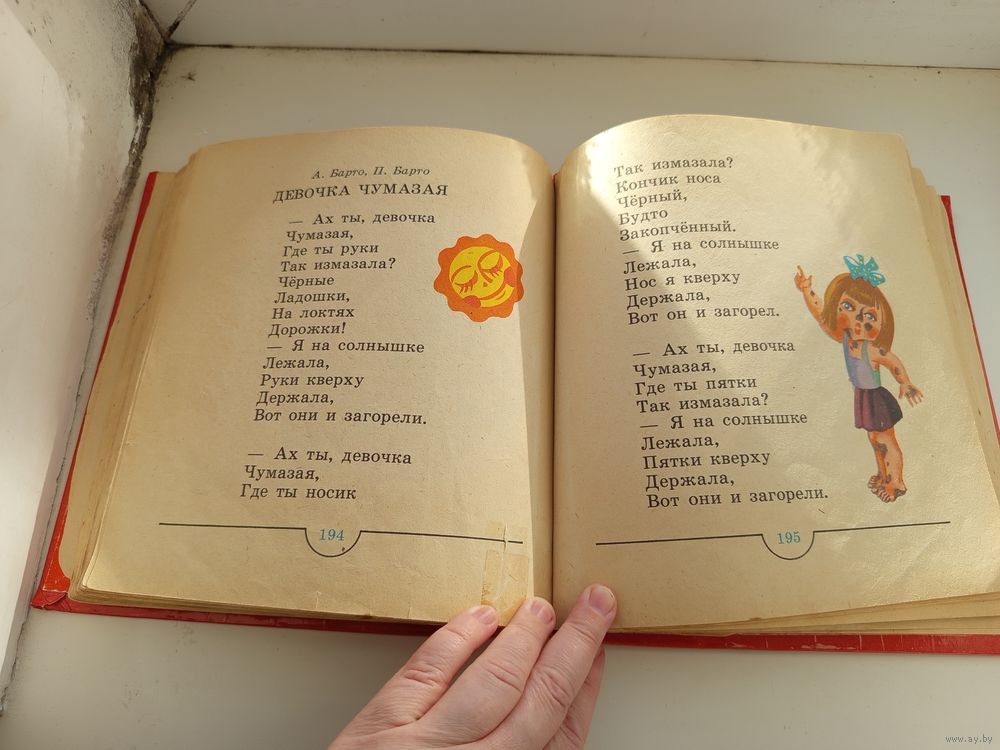 А. Барто, П. Барто
ДЕВОЧКА ЧУМАЗАЯ
— Ах ты, девочка
Чумазая,
Где ты руки
Так измазала?
Чёрные
Ладошки,
На локтях
Дорожки!
— Я на солнышке
Лежала,
Руки кверху
Держала,
Вот они и загорели.
— Ах ты, девочка
Чумазая,
Где ты носик
194
Так измазала?
Кончик носа
Чёрный,
Будто
Закопчённый.
— Я на солнышке
Лежала,
Нос я кверху
Держала,
Вот он и загорел.
— Ах ты, девочка
Чумазая,
Где ты пятки
Так измазала?
— Я на солнышке
Лежала,
Пятки кверху
Держала,
Вот они и загорели.
195
www.ay.by